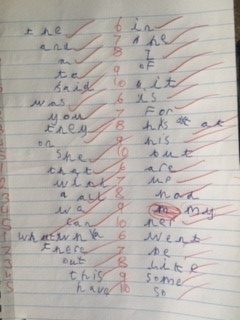 the 6 in
and 7 he
a 8 I
to 9 of
said 10 it
was 6 is
you 7 for
they 8 his at
on 9 his
she 10 but
that 6 are
7 up
a all 8 had
9 my
can 10 her
what 6 went
there 7 be
out 8 like
this 9 some
have 10 so